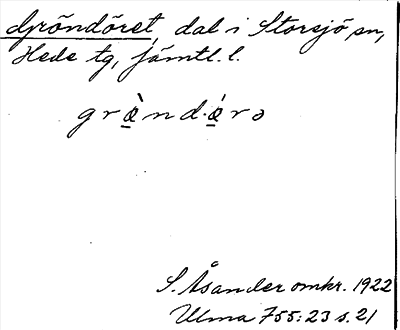 Gröndöret, dal i Storsjö sn,
Hede tg, Jämtl. l.
græ̀nd·œ́rə
S. Åsander omkr. 1922
Ulma 755:23 s. 21